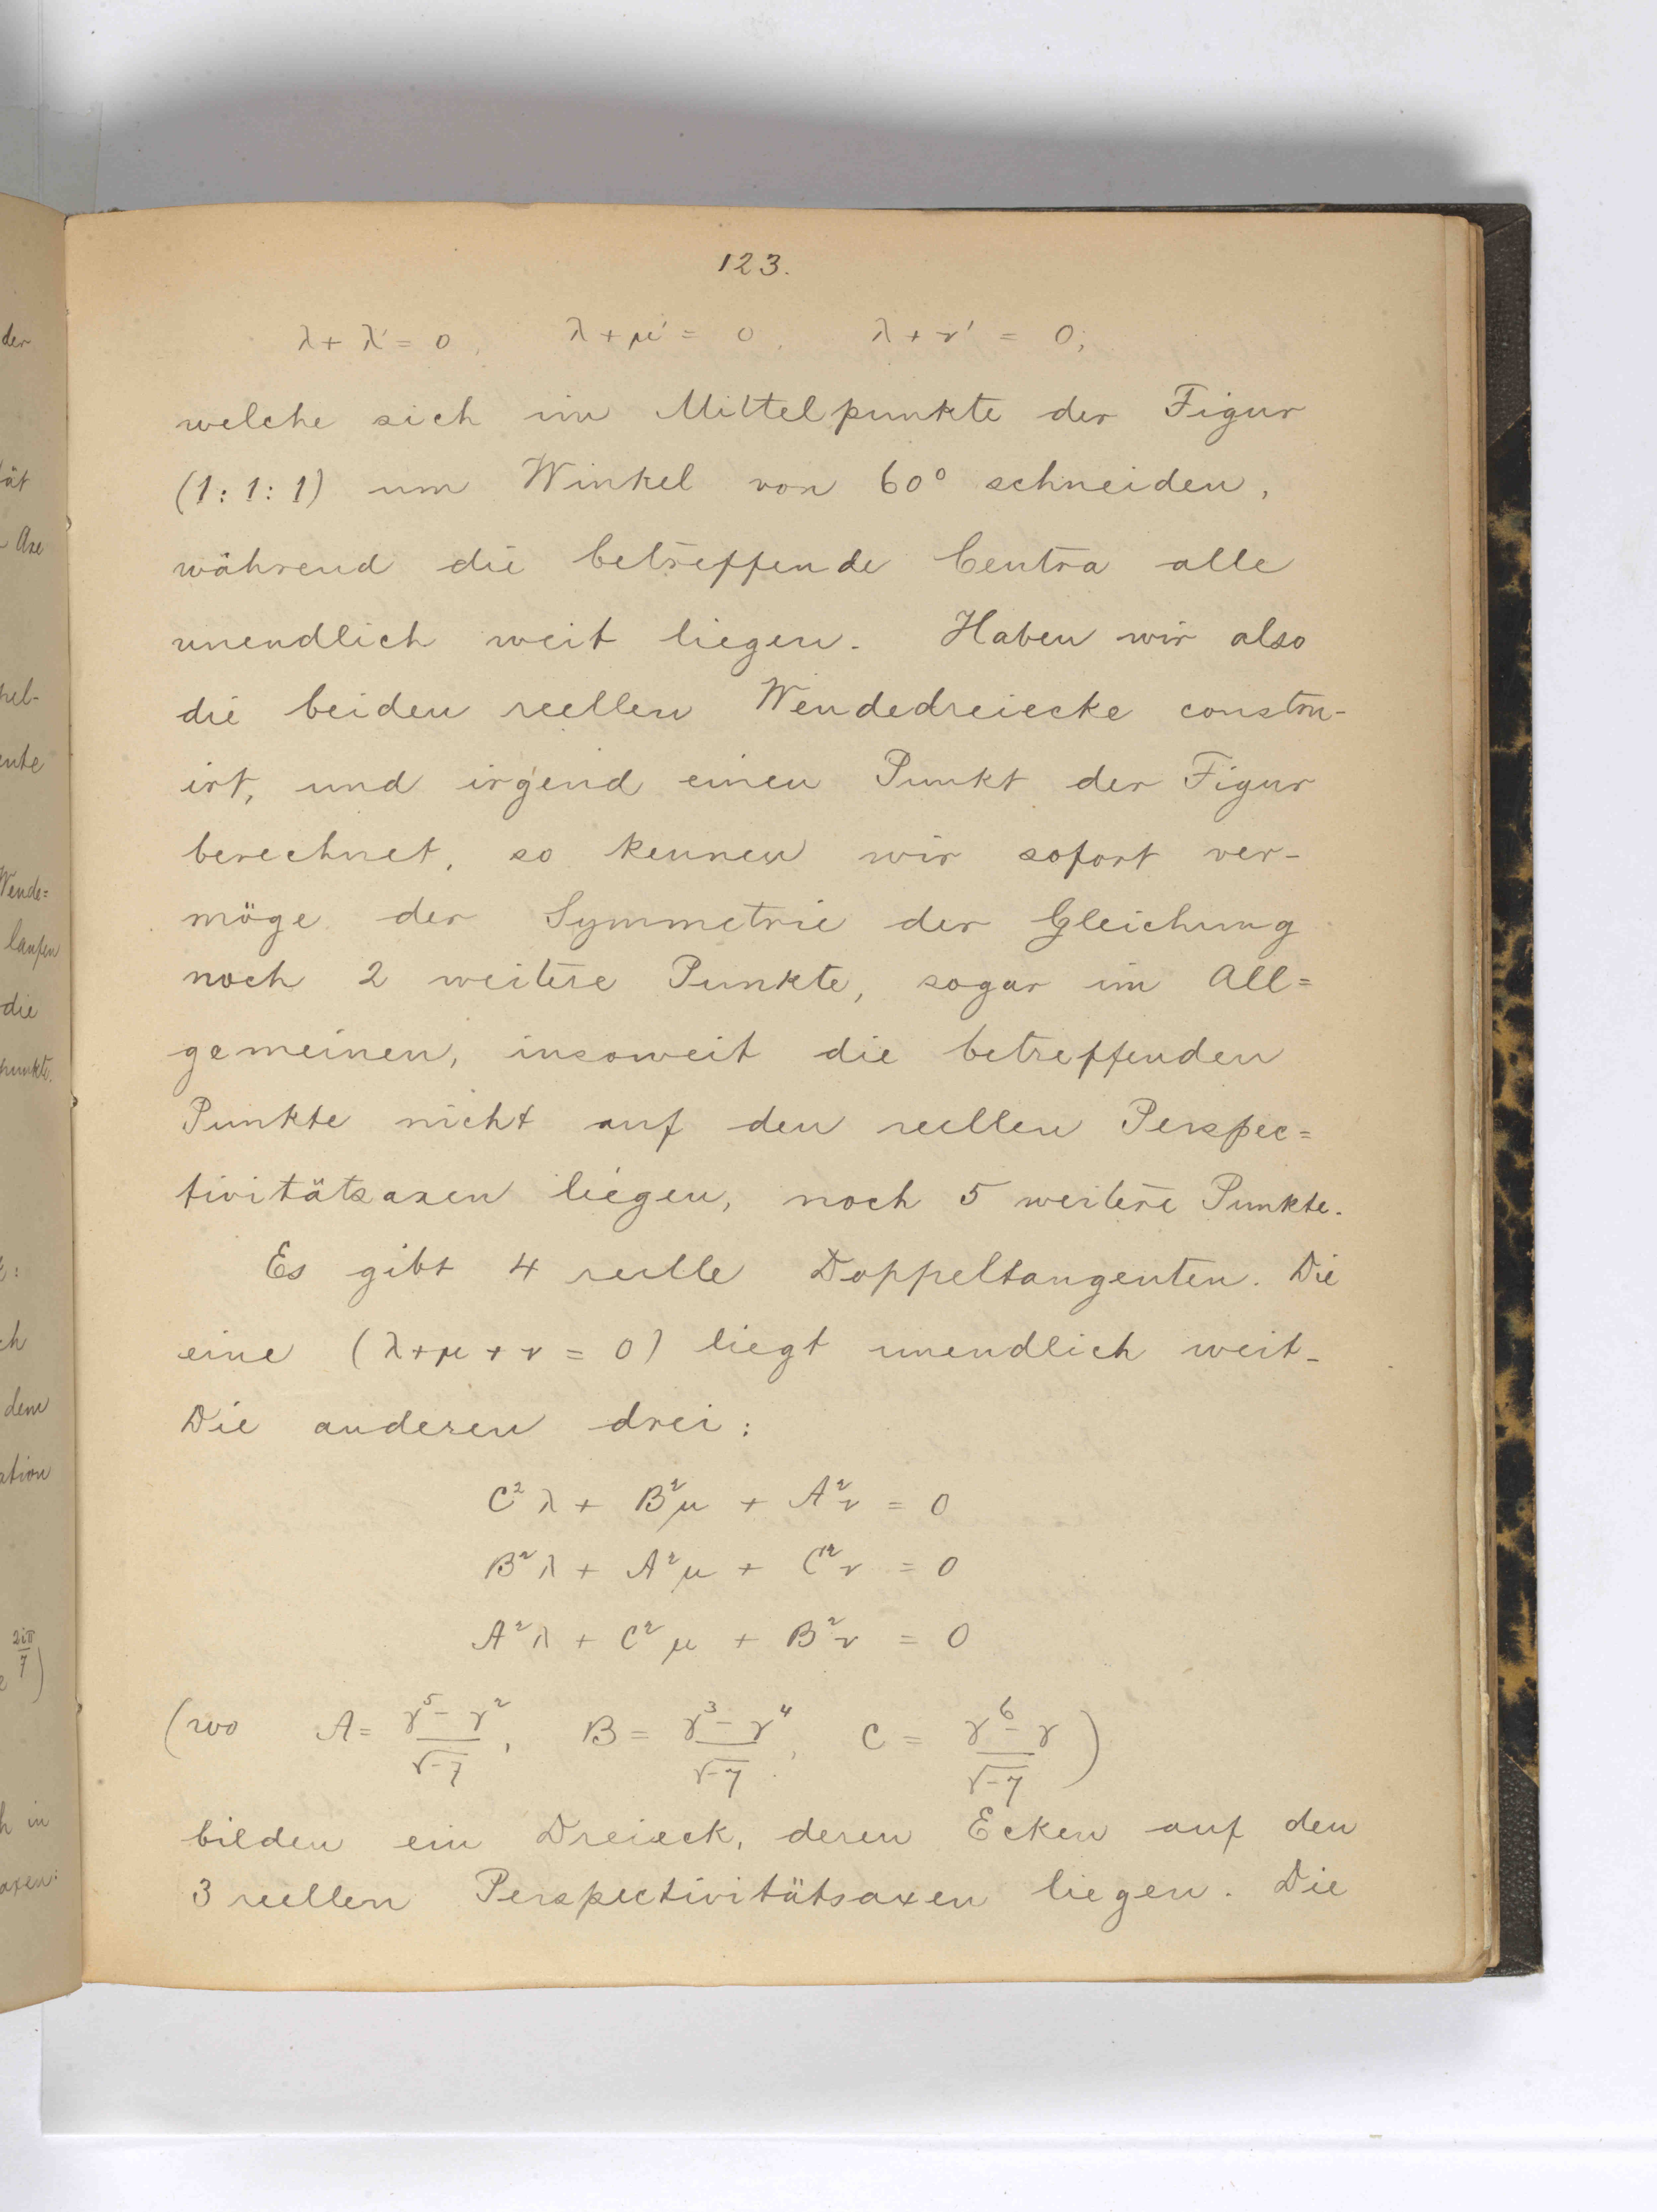 123.
λ + λ' = 0, λ + μ' = 0, λ + ν' = 0;
welche sich im Mittelpunkte der Figur
(1:1:1) um Winkel von 60° schneiden,
während die betreffende Centra alle
unendlich weit liegen. Haben wir also
die beiden reellen Wendedreiecke constru-
irt, und irgend einen Punkt der Figur
berechnet, so kennen wir sofort ver-
möge der Symmetrie der Gleichung
noch 2 weitere Punkte, sogar im All=
gemeinen, insoweit die betreffenden
Punkte nicht auf den reellen Perspec=
tivitätsaxen liegen, noch 5 weitere Punkte.
Es gibt 4 reelle Doppeltangenten. Die
eine (λ+μ+ν = 0) liegt unendlich weit.
Die anderen drei:
C²λ + B²μ + A²ν = 0
B²λ + A²μ + C²ν = 0
A²λ + C²μ + B²ν = 0
(wo A = (γ⁵ - γ²)/√-7, B = (γ³ - γ⁴)/√-7, C = (γ⁶ - γ)/√-7)
bilden ein Dreieck, deren Ecken auf den
3 reellen Perspectivitätsaxen liegen. Die
der
Axe
ente
Wende=
laufen
die
punkte.
dem
ation
2iπ
7
h in
axen: